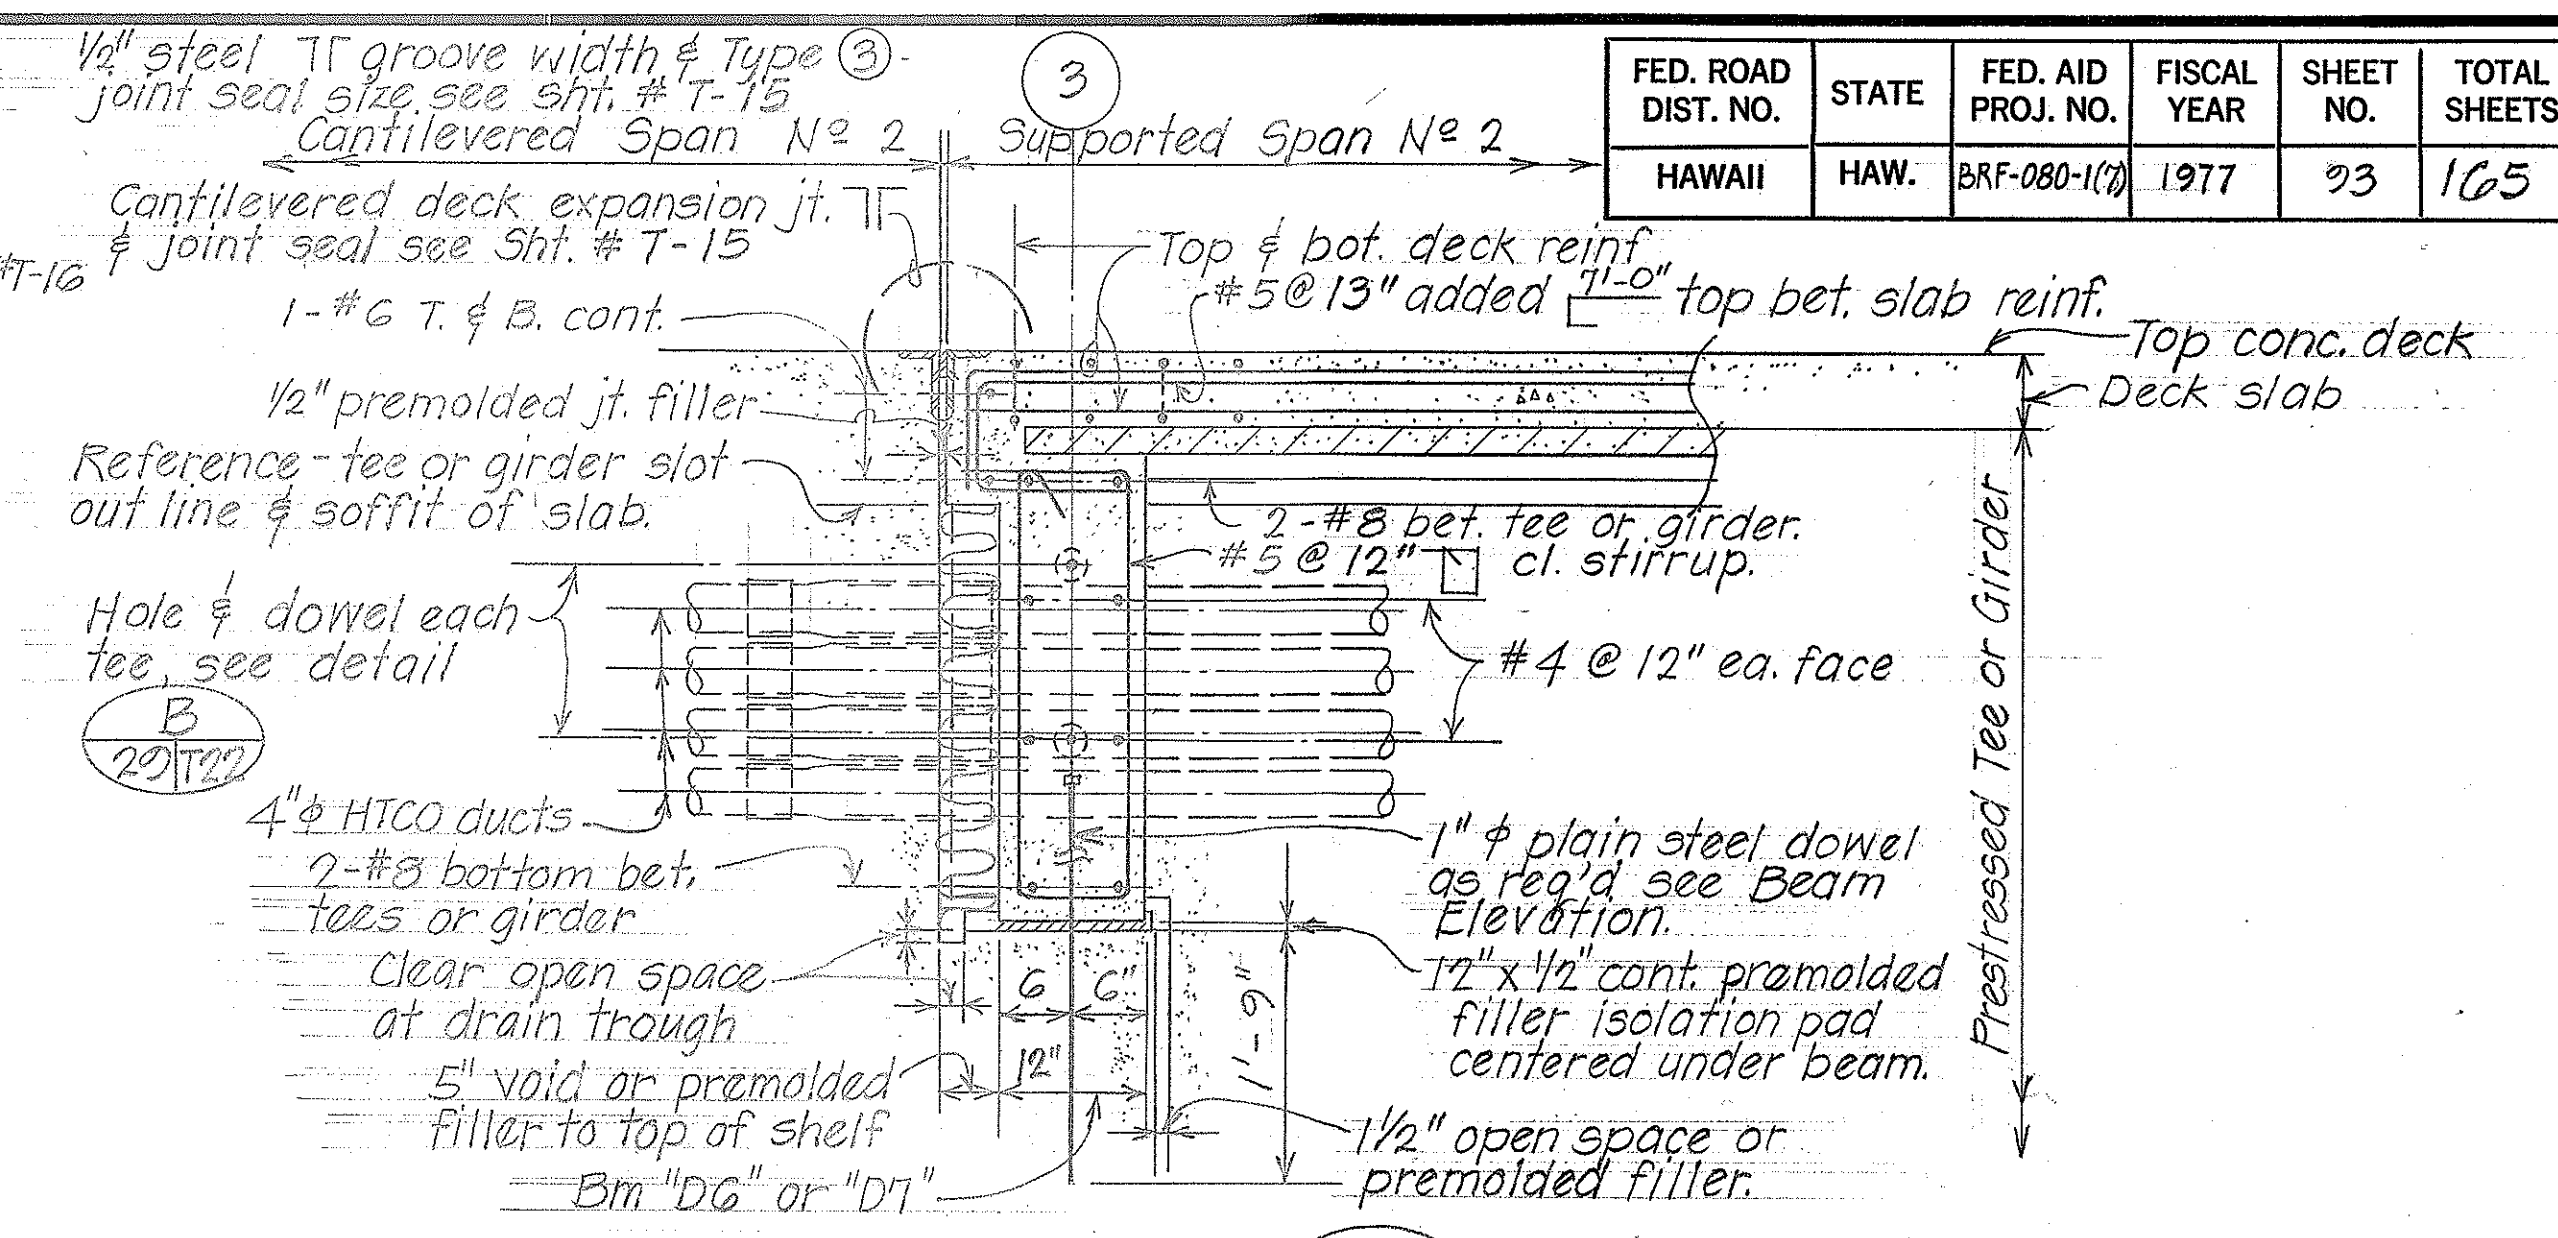 1/2" steel ℸΓ groove width & Type ③
joint seal size see sht. # T-15
3
Cantilevered Span Nº 2
Supported Span Nº 2
FED. ROAD DIST. NO.
STATE
FED. AID PROJ. NO.
FISCAL YEAR
SHEET NO.
TOTAL SHEETS
HAWAII
HAW.
BRF-080-1(7)
1977
93
165
Cantilevered deck expansion jt.
& joint seal see Sht. # T-15
#T-16
Top & bot. deck reinf
#5 @ 13" added 7'-0" top bet. slab reinf.
1-#6 T. & B. cont.
Top conc. deck
Deck slab
1/2" premolded jt. filler
Reference - tee or girder slot
out line & soffit of slab.
2-#8 bet. tee or girder.
#5 @ 12" cl. stirrup.
Hole & dowel each
tee, see detail
B
29 T22
#4 @ 12" ea. face
Prestressed Tee or Girder
4" φ HTCO ducts
2-#8 bottom bet.
tees or girder
1" φ plain steel dowel
as req'd see Beam
Elevation.
Clear open space
at drain trough
6 6"
1'-9"
12" x 1/2" cont. premolded
filler isolation pad
centered under beam.
12"
5" void or premolded
filler to top of shelf
Bm "D6" or "D7"
1 1/2" open space or
premolded filler.